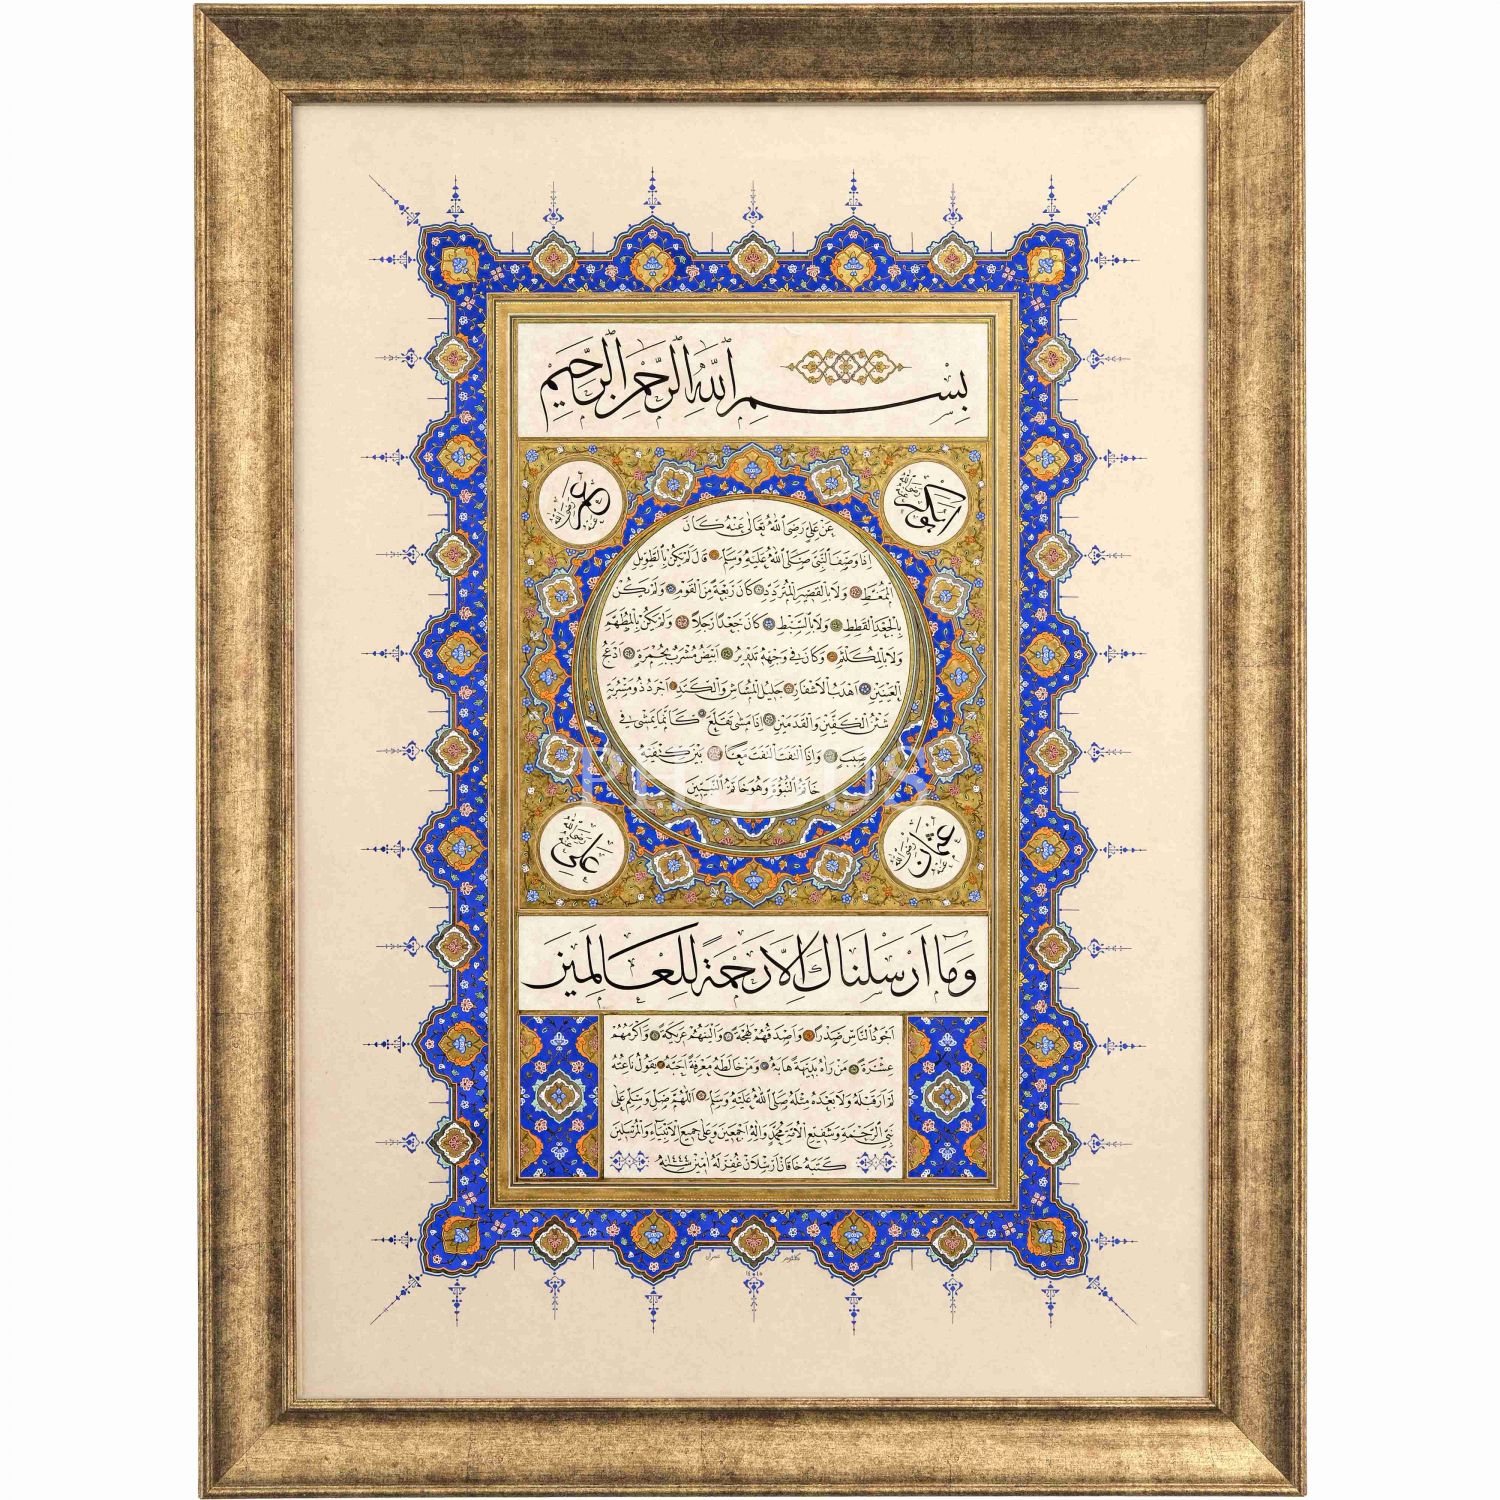 بِسْمِ ٱللّٰهِ ٱلرَّحْمٰنِ ٱلرَّحِيمِ
ابوبكر رضى الله عنه
عمر رضى الله عنه
عَنْ عَلِيٍّ رَضِىَ ٱللّٰهُ تَعَالٰى عَنْهُ كَانَ
اِذَا وَصَفَ النَّبِىَّ صَلَّى ٱللّٰهُ عَلَيْهِ وَسَلَّمَ قَالَ لَمْ يَكُنْ بِالطَّوِيلِ
الْمُمَّغِطِ وَلَا بِالْقَصِيرِ الْمُتَرَدِّدِ كَانَ رَبْعَةً مِنَ الْقَوْمِ وَلَمْ يَكُنْ
بِالْجَعْدِ الْقَطَطِ وَلَا بِالسَّبِطِ كَانَ جَعْدًا رَجِلًا وَلَمْ يَكُنْ بِالْمُطَهَّمِ
وَلَا بِالْمُكَلْثَمِ وَكَانَ فِى وَجْهِهِ تَدْوِيرٌ اَبْيَضُ مُشْرَبٌ بِحُمْرَةٍ اَدْعَجُ
الْعَيْنَيْنِ اَهْدَبُ الْاَشْفَارِ جَلِيلُ الْمُشَاشِ وَالْكَتَدِ اَجْرَدُ ذُو مَسْرُبَةٍ
شَثْنُ الْكَفَّيْنِ وَالْقَدَمَيْنِ اِذَا مَشٰى تَقَلَّعَ كَاَنَّمَا يَمْشِى فِى
صَبَبٍ وَاِذَا الْتَفَتَ الْتَفَتَ مَعًا بَيْنَ كَتِفَيْهِ
خَاتَمُ النُّبُوَّةِ وَهُوَ خَاتَمُ النَّبِيِّينَ
عثمان رضى الله عنه
على رضى الله عنه
وَمَا اَرْسَلْنَاكَ اِلَّا رَحْمَةً لِلْعَالَمِينَ
اَجْوَدُ النَّاسِ صَدْرًا وَاَصْدَقُهُمْ لَهْجَةً وَاَلْيَنُهُمْ عَرِيكَةً وَاَكْرَمُهُمْ
عِشْرَةً مَنْ رَاٰهُ بَدِيهَةً هَابَهُ وَمَنْ خَالَطَهُ مَعْرِفَةً اَحَبَّهُ يَقُولُ نَاعِتُهُ
لَمْ اَرَ قَبْلَهُ وَلَا بَعْدَهُ مِثْلَهُ صَلَّى ٱللّٰهُ عَلَيْهِ وَسَلَّمَ اَللّٰهُمَّ صَلِّ وَسَلِّمْ عَلٰى
نَبِىِّ الرَّحْمَةِ وَشَفِيعِ الْاُمَّةِ مُحَمَّدٍ وَاٰلِهِ اَجْمَعِينَ وَعَلٰى جَمِيعِ الْاَنْبِيَاءِ وَالْمُرْسَلِينَ
كَتَبَهُ خَاقَانْ اَرْسِلَانْ غُفِرَ لَهُ اٰمِينْ سنه ١٤٤٤